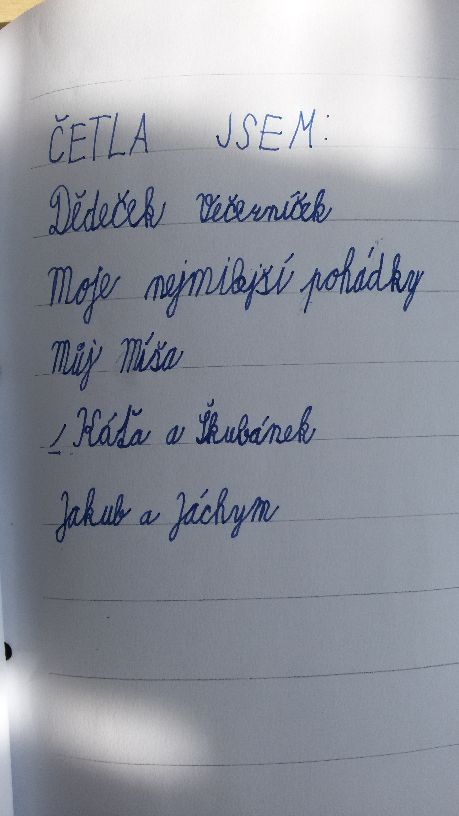 ČETLA JSEM:
Dědeček Večerníček
Moje nejmilejší pohádky
Můj Míša
Káťa a Škubánek
Jakub a Jáchym